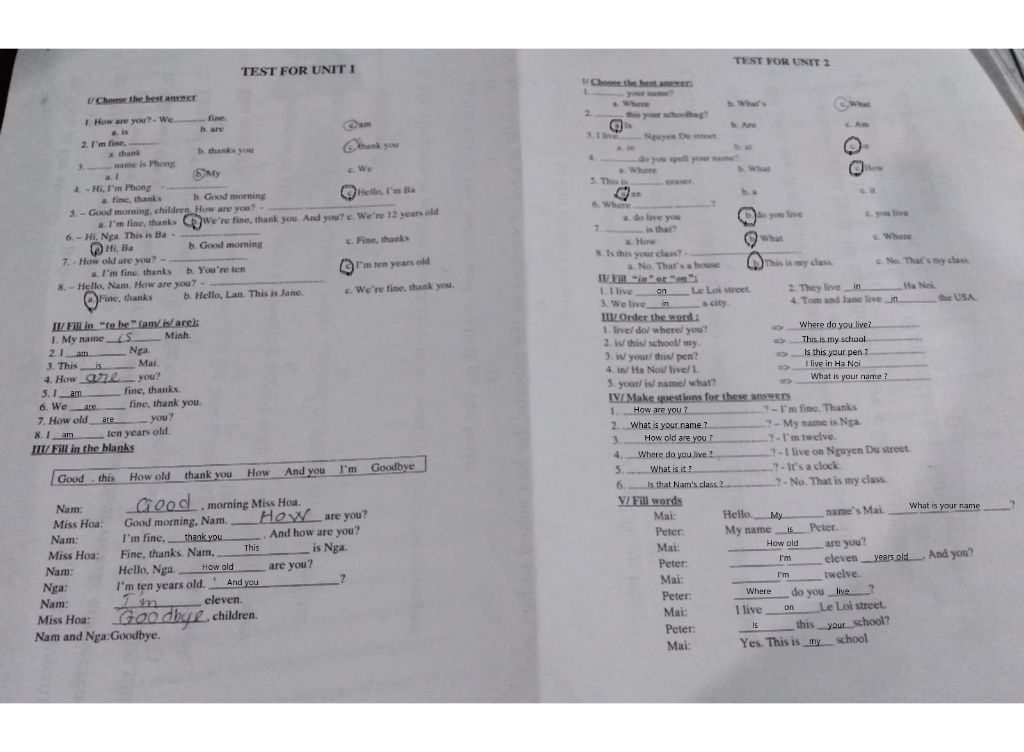 TEST FOR UNIT 1
I/ Choose the best answer
1. How are you? - We_______ fine.
a. is b. are c. am
2. I'm fine, _______
a. thank b. thanks you c. thank you
3. _______ name is Phong.
a. I b. My c. We
4. - Hi, I'm Phong - _______
a. fine, thanks b. Good morning c. Hello, I'm Ba
5. – Good morning, children. How are you? - _______
a. I'm fine, thanks b. We're fine, thank you. And you? c. We're 12 years old
6. – Hi, Nga. This is Ba - _______
a. Hi, Ba b. Good morning c. Fine, thanks
7. - How old are you? – _______
a. I'm fine. thanks b. You're ten c. I'm ten years old
8. – Hello, Nam. How are you? - _______
a. Fine, thanks b. Hello, Lan. This is Jane. c. We're fine, thank you.
II/ Fill in "to be" (am/ is/ are):
1. My name is Minh.
2. I am Nga.
3. This is Mai.
4. How are you?
5. I am fine, thanks.
6. We are fine, thank you.
7. How old are you?
8. I am ten years old.
III/ Fill in the blanks
Good . this How old thank you How And you I'm Goodbye
Nam: Good , morning Miss Hoa.
Miss Hoa: Good morning, Nam. How are you?
Nam: I'm fine, thank you . And how are you?
Miss Hoa: Fine, thanks. Nam, This is Nga.
Nam: Hello, Nga. How old are you?
Nga: I'm ten years old. And you ?
Nam: I'm eleven.
Miss Hoa: Goodbye , children.
Nam and Nga:Goodbye.
TEST FOR UNIT 2
I/ Choose the best answer:
1. _______ your name?
a. Where b. What's c. What
2. _______ this your schoolbag?
a. Is b. Are c. Am
3. I live_______ Nguyen Du street.
a. in b. at c. on
4. _______ do you spell your name?
a. Where b. What c. How
5. This is _______ eraser.
a. an b. a c. it
6. Where _______?
a. do live you b. do you live c. you live
7. _______ is that?
a. How b. What c. Where
8. Is this your class? - _______
a. No. That's a house b. This is my class. c. No. That's my class.
II/ Fill "in" or "on":
1. I live on Le Loi street. 2. They live in Ha Noi.
3. We live in a city. 4. Tom and Jane live in the USA.
III/ Order the word :
1. live/ do/ where/ you? => Where do you live?
2. is/ this/ school/ my. => This is my school
3. is/ your/ this/ pen? => Is this your pen ?
4. in/ Ha Noi/ live/ I. => I live in Ha Noi
5. your/ is/ name/ what? => What is your name ?
IV/ Make questions for these answers
1. How are you ? ? – I'm fine. Thanks
2. What is your name ? ? – My name is Nga.
3. How old are you ? ? - I'm twelve.
4. Where do you live ? ? - I live on Nguyen Du street.
5. What is it ? ? - It's a clock.
6. Is that Nam's class ? ? - No. That is my class.
V/ Fill words
Mai: Hello. My name's Mai. What is your name ?
Peter: My name is Peter.
Mai: How old are you?
Peter: I'm eleven years old . And you?
Mai: I'm twelve.
Peter: Where do you live ?
Mai: I live on Le Loi street.
Peter: Is this your school?
Mai: Yes. This is my school